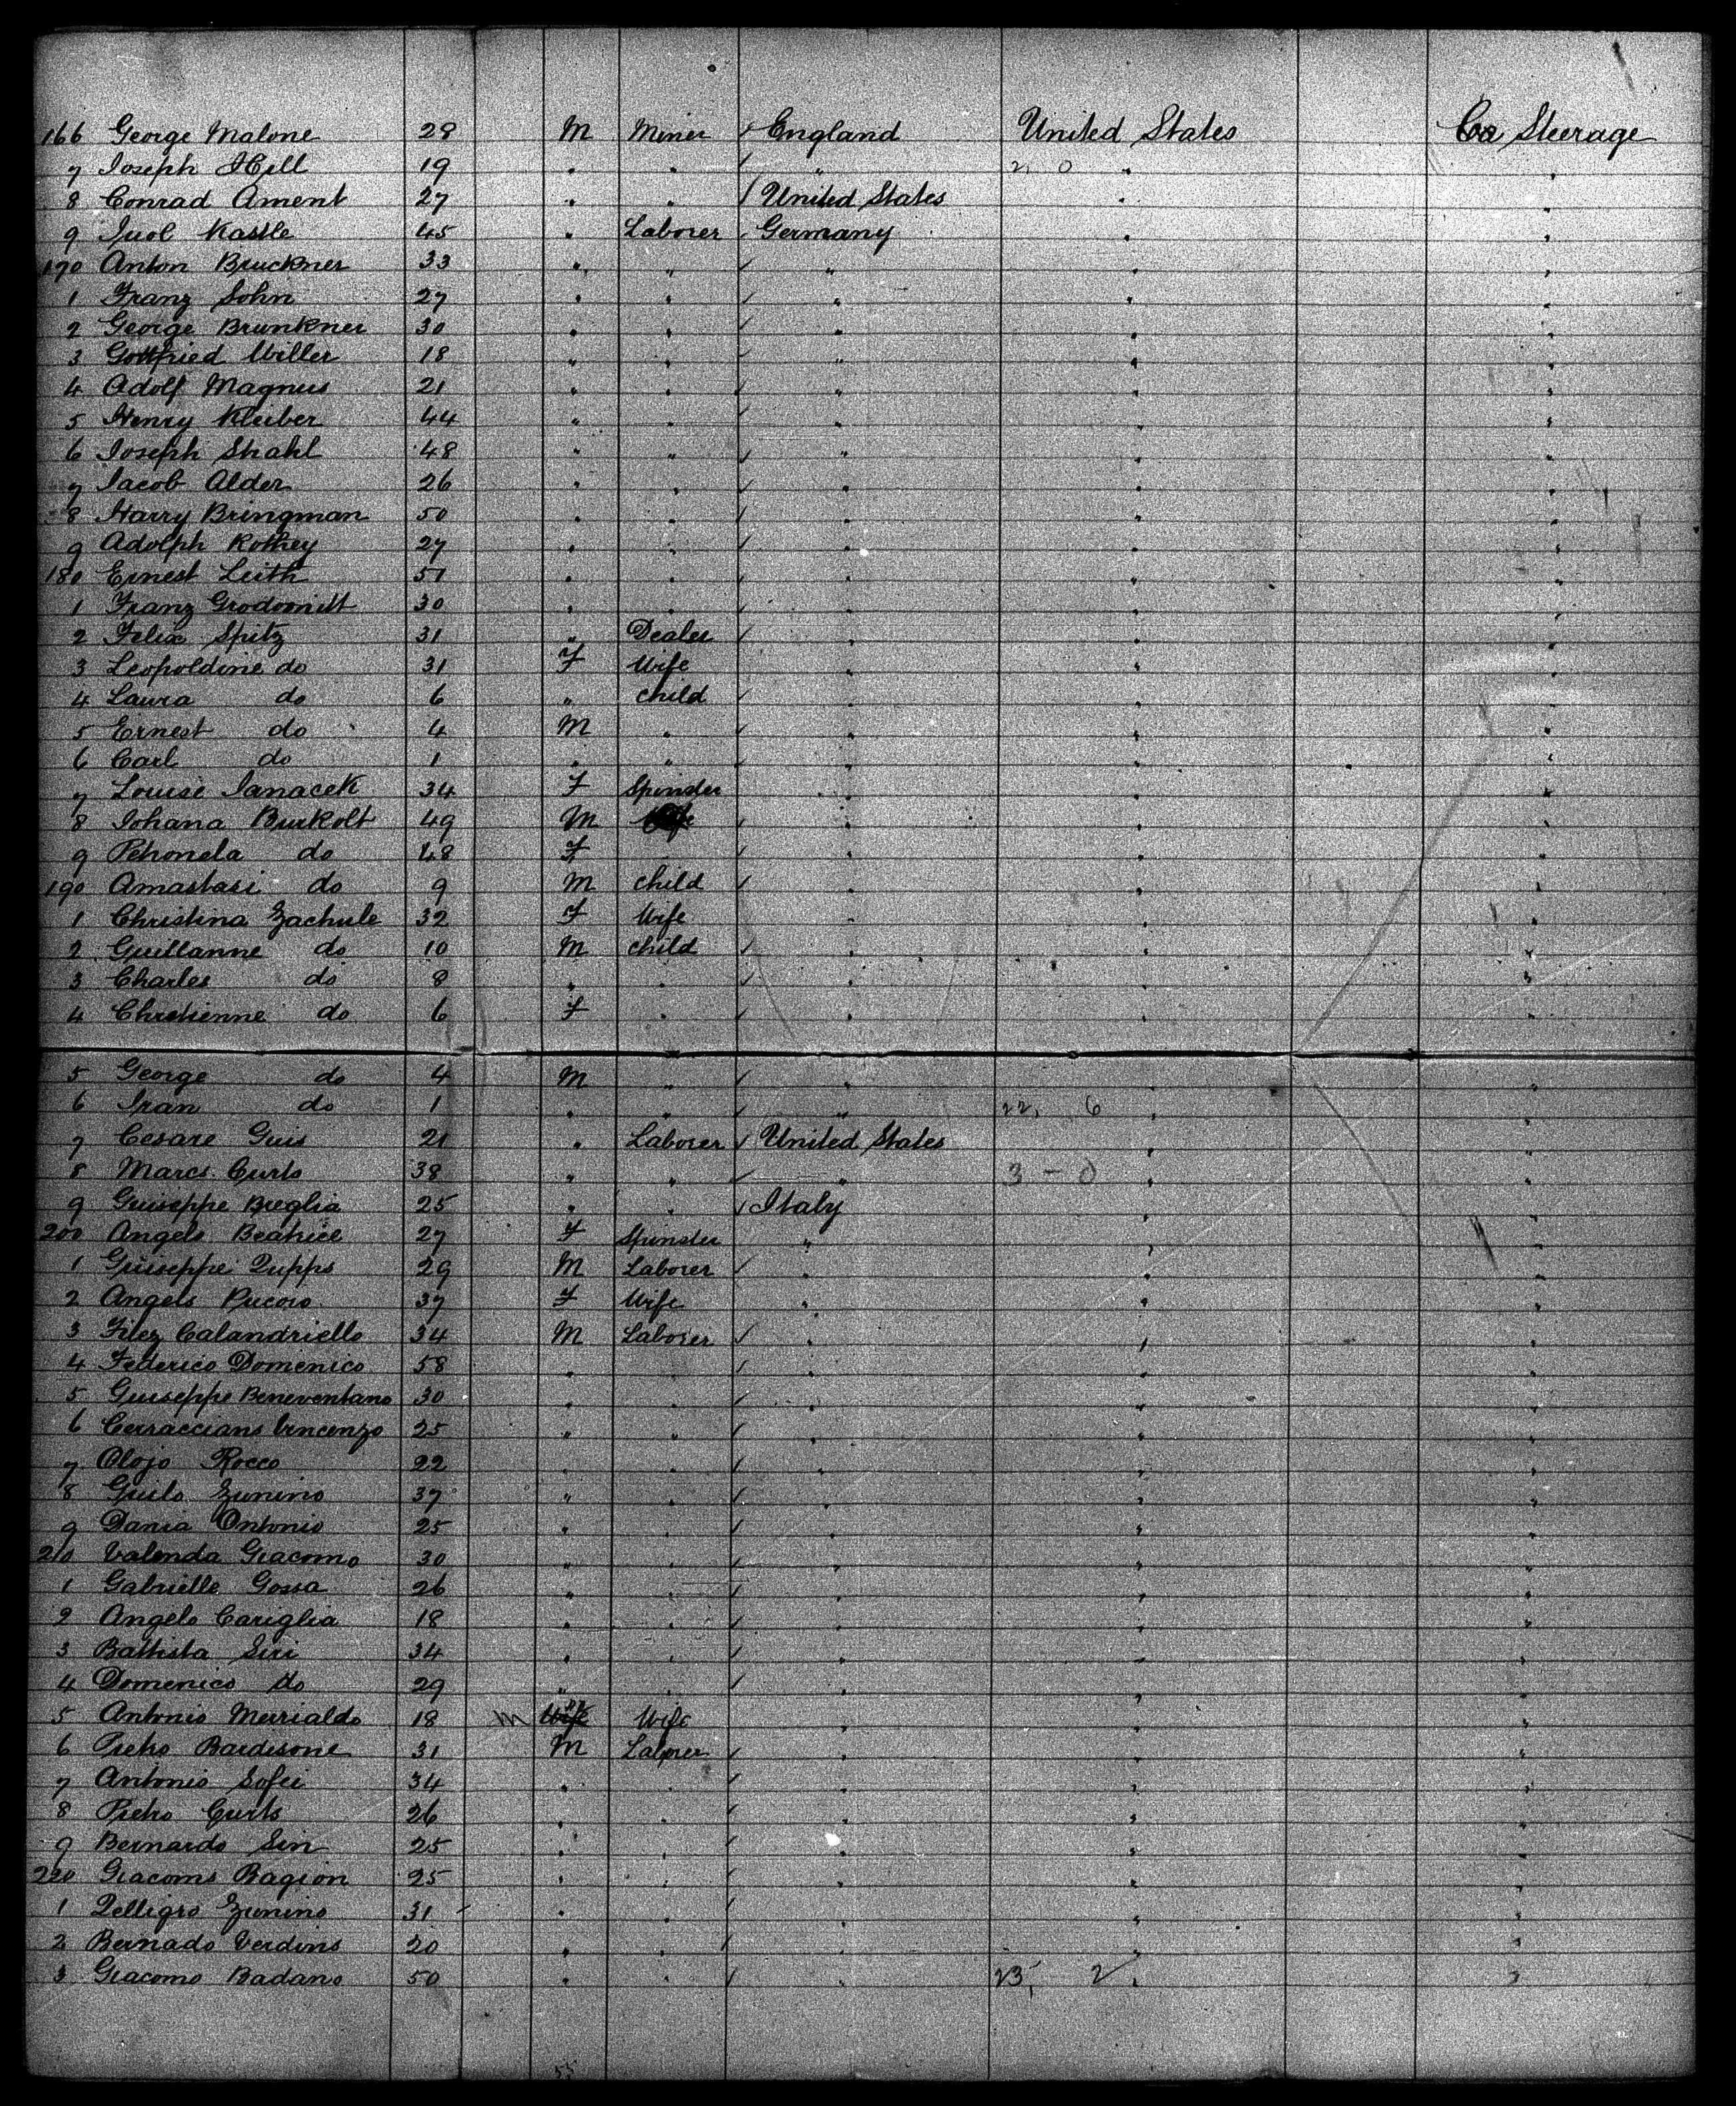 166 George Malone 28 M Miner ✓ England United States Steerage
7 Joseph Hill 19 " " ✓ " 2, 0 " "
8 Conrad Ament 27 " " ✓ United States " "
9 Kastle 45 " Laborer ✓ Germany " "
170 Anton Bruckner 33 " " ✓ " "
1 Franz Sohn 27 " " ✓ " " "
2 George Brunkner 30 " " ✓ " " "
3 Gottfried Miller 18 " " ✓ " " "
4 Adolf Magnus 21 " " ✓ " " "
5 Henry Kleiber 44 " " ✓ " " "
6 Joseph Strahl 48 " " ✓ " " "
7 Jacob Alder 26 " " ✓ " " "
8 Harry Bringman 50 " " ✓ " " "
9 Adolph Rothey 27 " " ✓ " " "
180 Ernest Leith 51 " " ✓ " " "
1 Franz 30 " " ✓ " " "
2 Felix Spitz 31 " Dealer ✓ " " "
3 Leopoldine do 31 F Wife " " "
4 Laura do 6 " child ✓ " " "
5 Ernest do 4 M " ✓ " " "
6 Carl do 1 " " ✓ " " "
7 Louise Janacek 34 F Spinster " " "
8 Johana Burkolt 49 M ✓ " " "
9 Pehonela do 48 F ✓ " " "
190 Amastasi do 9 M child ✓ " " "
1 Christina Zachule 32 F Wife " " "
2 Guillanne do 10 M child ✓ " " "
3 Charles do 8 " " ✓ " " "
4 Chretienne do 6 F " ✓ " " "
5 George do 4 M " ✓ " " "
6 Iran do 1 " " ✓ " 22, 6 " "
7 Cesare Guis 21 " Laborer ✓ United States " "
8 Marcs. Curto 38 " " ✓ " 3 - 0 " "
9 Guiseppe Breglia 25 " " ✓ Italy " "
200 Angelo Beatrice 27 F Spinster " " "
1 Guiseppe Zupps 29 M Laborer ✓ " " "
2 Angels Pucoro 37 F Wife " " "
3 Filez Calandriello 34 M Laborer ✓ " " "
4 Federico Domenico 58 " " ✓ " " "
5 Guiseppe Beneventano 30 " " ✓ " " "
6 Cerraccians Vincenzo 25 " " ✓ " " "
7 Olojo Rocco 22 " " ✓ " " "
8 Guilo Zunino 37 " " ✓ " " "
9 Dania Antonio 25 " " ✓ " " "
210 Valenda Giacomo 30 " " ✓ " " "
1 Gabrielle Gossa 26 " " ✓ " " "
2 Angelo Cariglia 18 " " ✓ " " "
3 Battista Siri 34 " " ✓ " " "
4 Domenico do 29 " " ✓ " " "
5 Antonio Merialdo 18 M Wife Wife " " "
6 Pietro Bardisone 31 M Laborer ✓ " " "
7 Antonio Sofei 34 " " ✓ " " "
8 Pietro Curts 26 " " ✓ " " "
9 Bernardo Sin 25 " " ✓ " " "
220 Giacomo Bagion 25 " " ✓ " " "
1 Pelligro Zunino 31 " " ✓ " " "
2 Bernado Verdino 20 " " ✓ " " "
3 Giacomo Badano 50 " " ✓ " 23, 2 " "